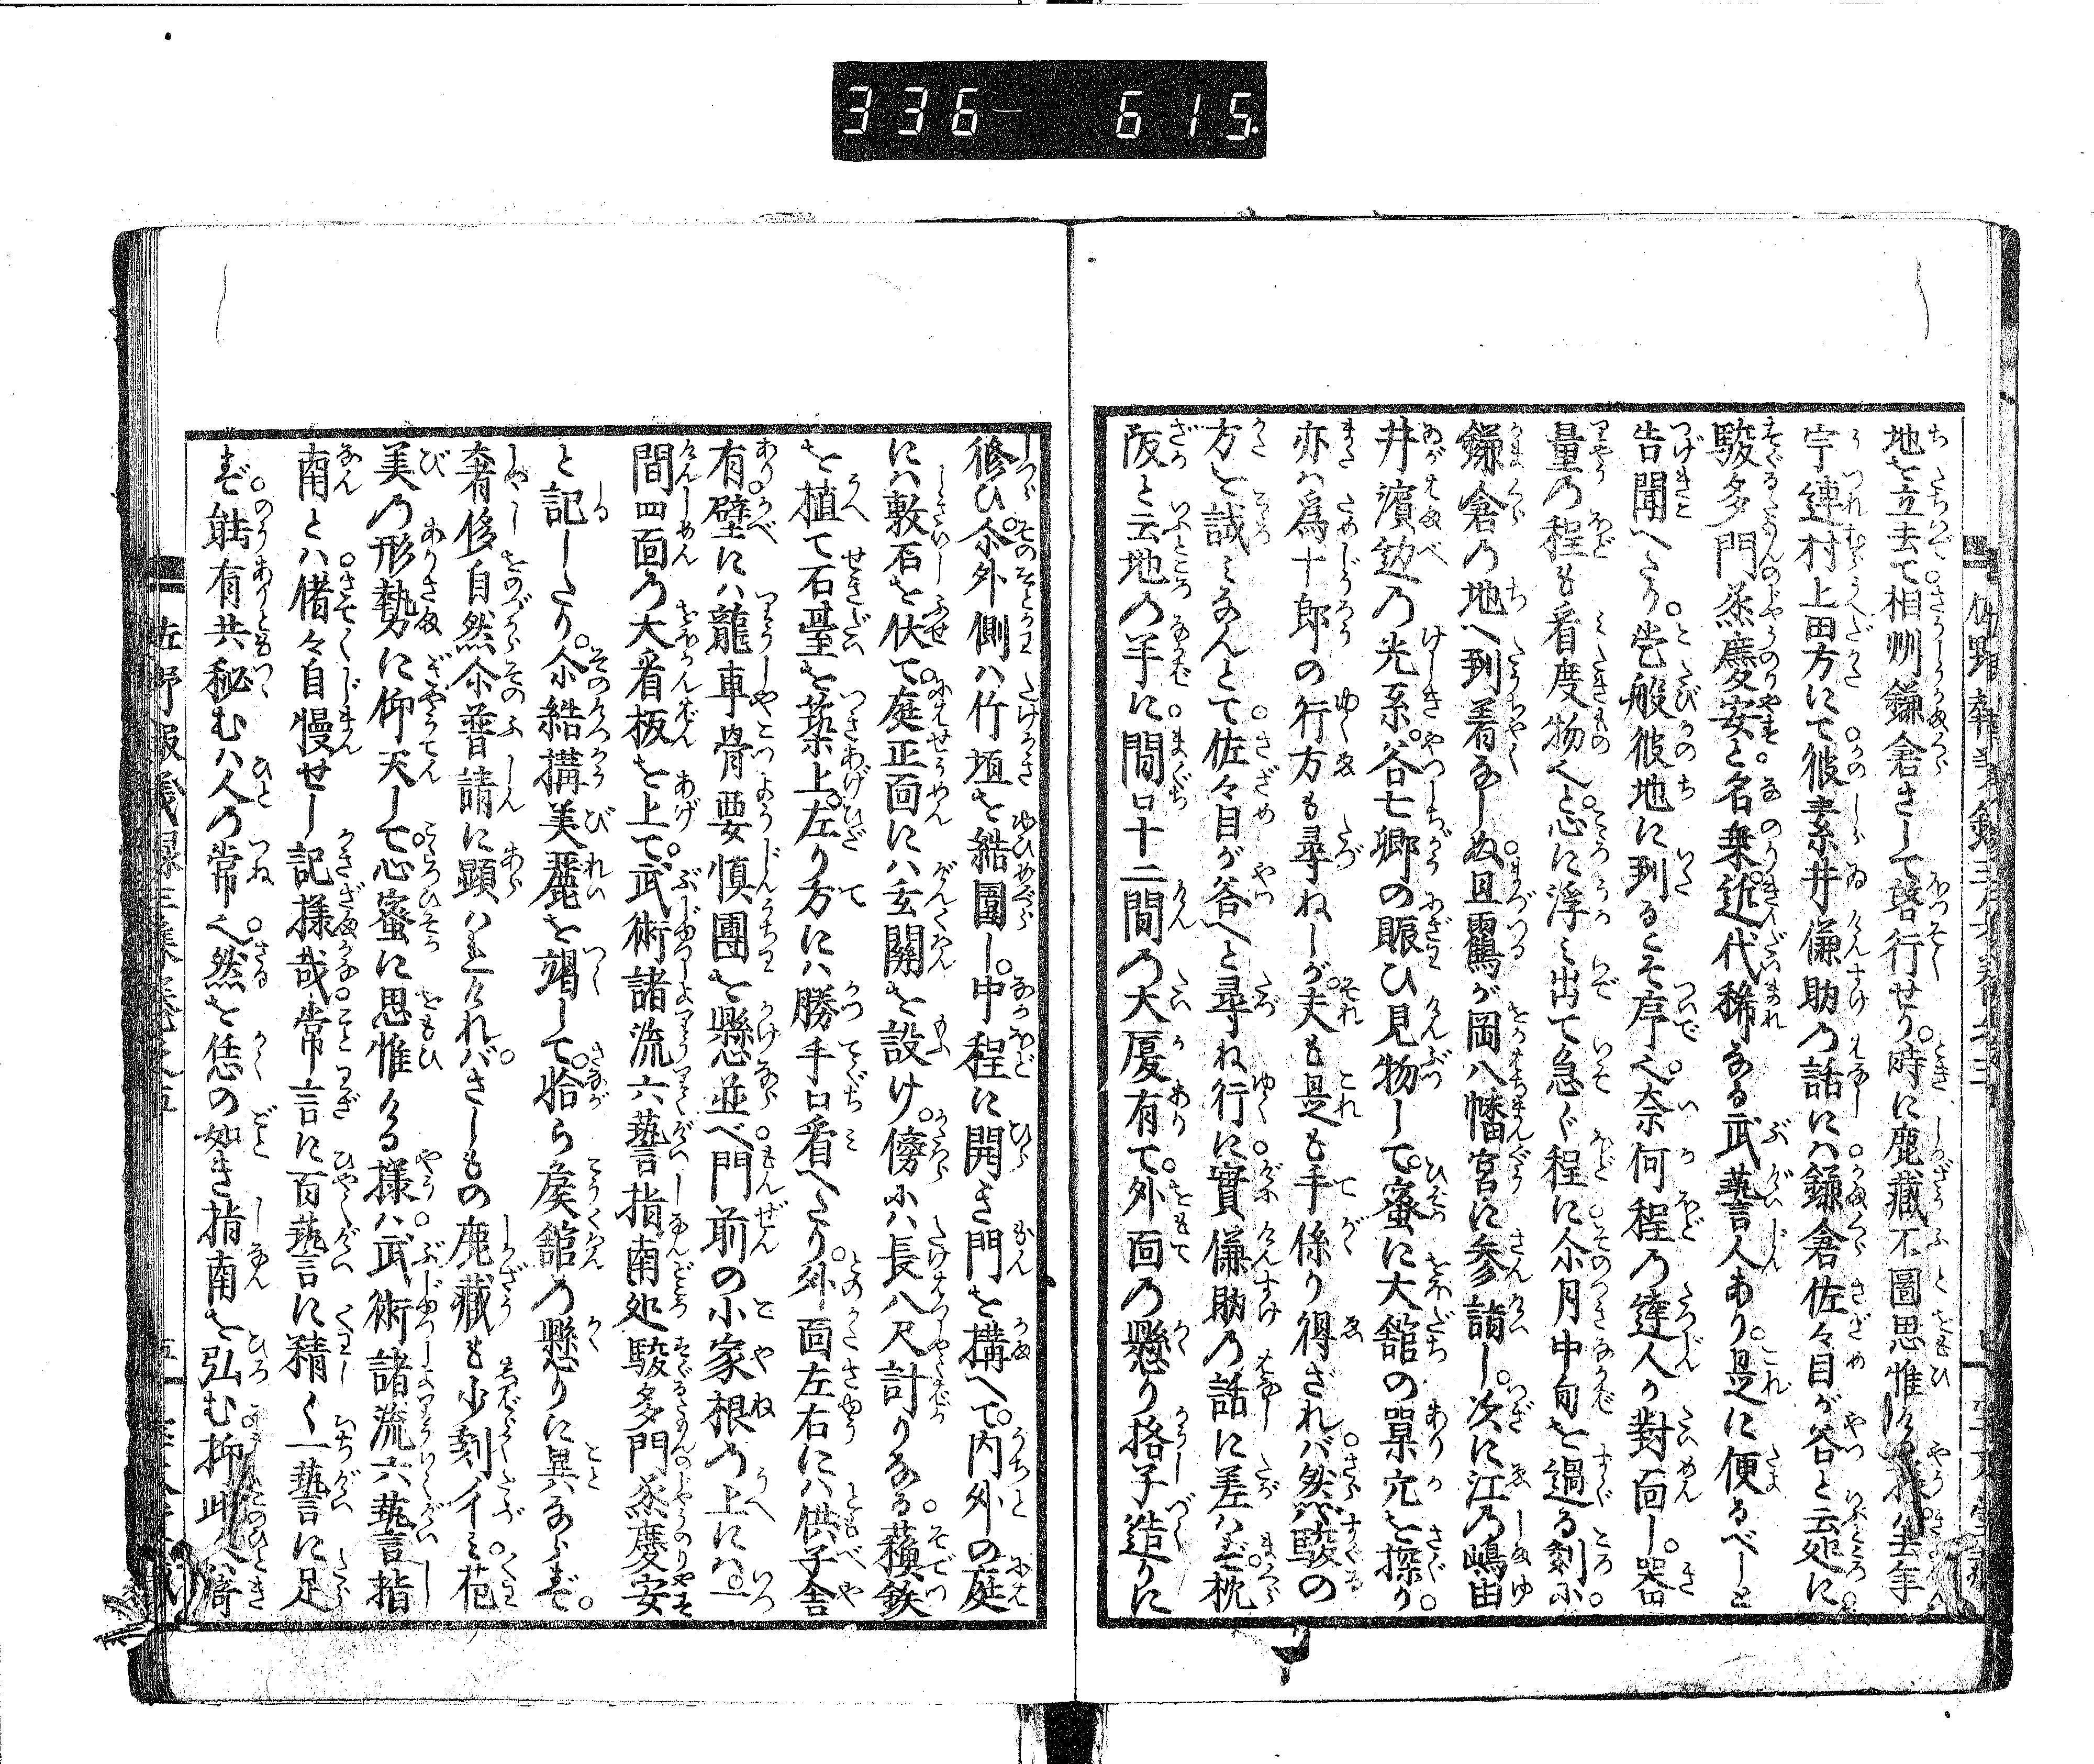 336- 615.
地を立去て相州鎌倉さして啓行せり時に鹿藏不圖思惟けるは去年
宇連村上田方にて彼素井傔助の話には鎌倉佐々目が谷と云処に
駿多門烝慶安と名乗近代稀なる武藝人あり是に便るべしと
告聞へたり。迚般彼地に到るこそ序へ奈何程の達人か對面し。器
量の程も看度物へと心に浮み出て急ぐ程に尒月中旬を過る刻小
鎌倉の地へ到着なしぬ且靍が岡八幡宮に参詣し。次に江の嶋由
井濱辺の光系。谷七郷の賑ひ見物して。蜜に大舘の巣穴を探り。
亦は爲十郎の行方も尋ねしが。夫も是も手係り得ざれバ然バ駿の
方を試みなんとて佐々目が谷へと尋ね行に實傔助の話に差はず枕
阪と云地の半に間口十二間の大厦有て。外面の懸り格子造りに
修ひ。尒外側ハ竹垣を結圍し。中程に開き門を構へて。内外の庭
にハ敷石を伏て。庭正面にハ玄關を設け。傍小ハ長八尺計りなる蘓鉄
を植て石臺を築上。左り方にハ勝手口看へたり。外面左右にハ供子舎
有壁にハ龍車骨要慎團を懸並べ門前の小家根の上にハ一
間四面の大看板を上て。武術諸流六藝指南処駿多門烝慶安
と記したり。尒結構美麗を竭して。恰ら矦舘の懸りに異ならず。
奢侈自然尒普請に顕ハれけれバ。さしもの鹿藏も少刻イミ花
美の形勢に仰天して。心蜜に思惟ける樣ハ武術諸流六藝指
南とハ偖々自慢せし記樣哉常言に百藝に精く一藝に足
ず。能有共秘むハ人の常へ然を恁の如き指南を弘む抑此